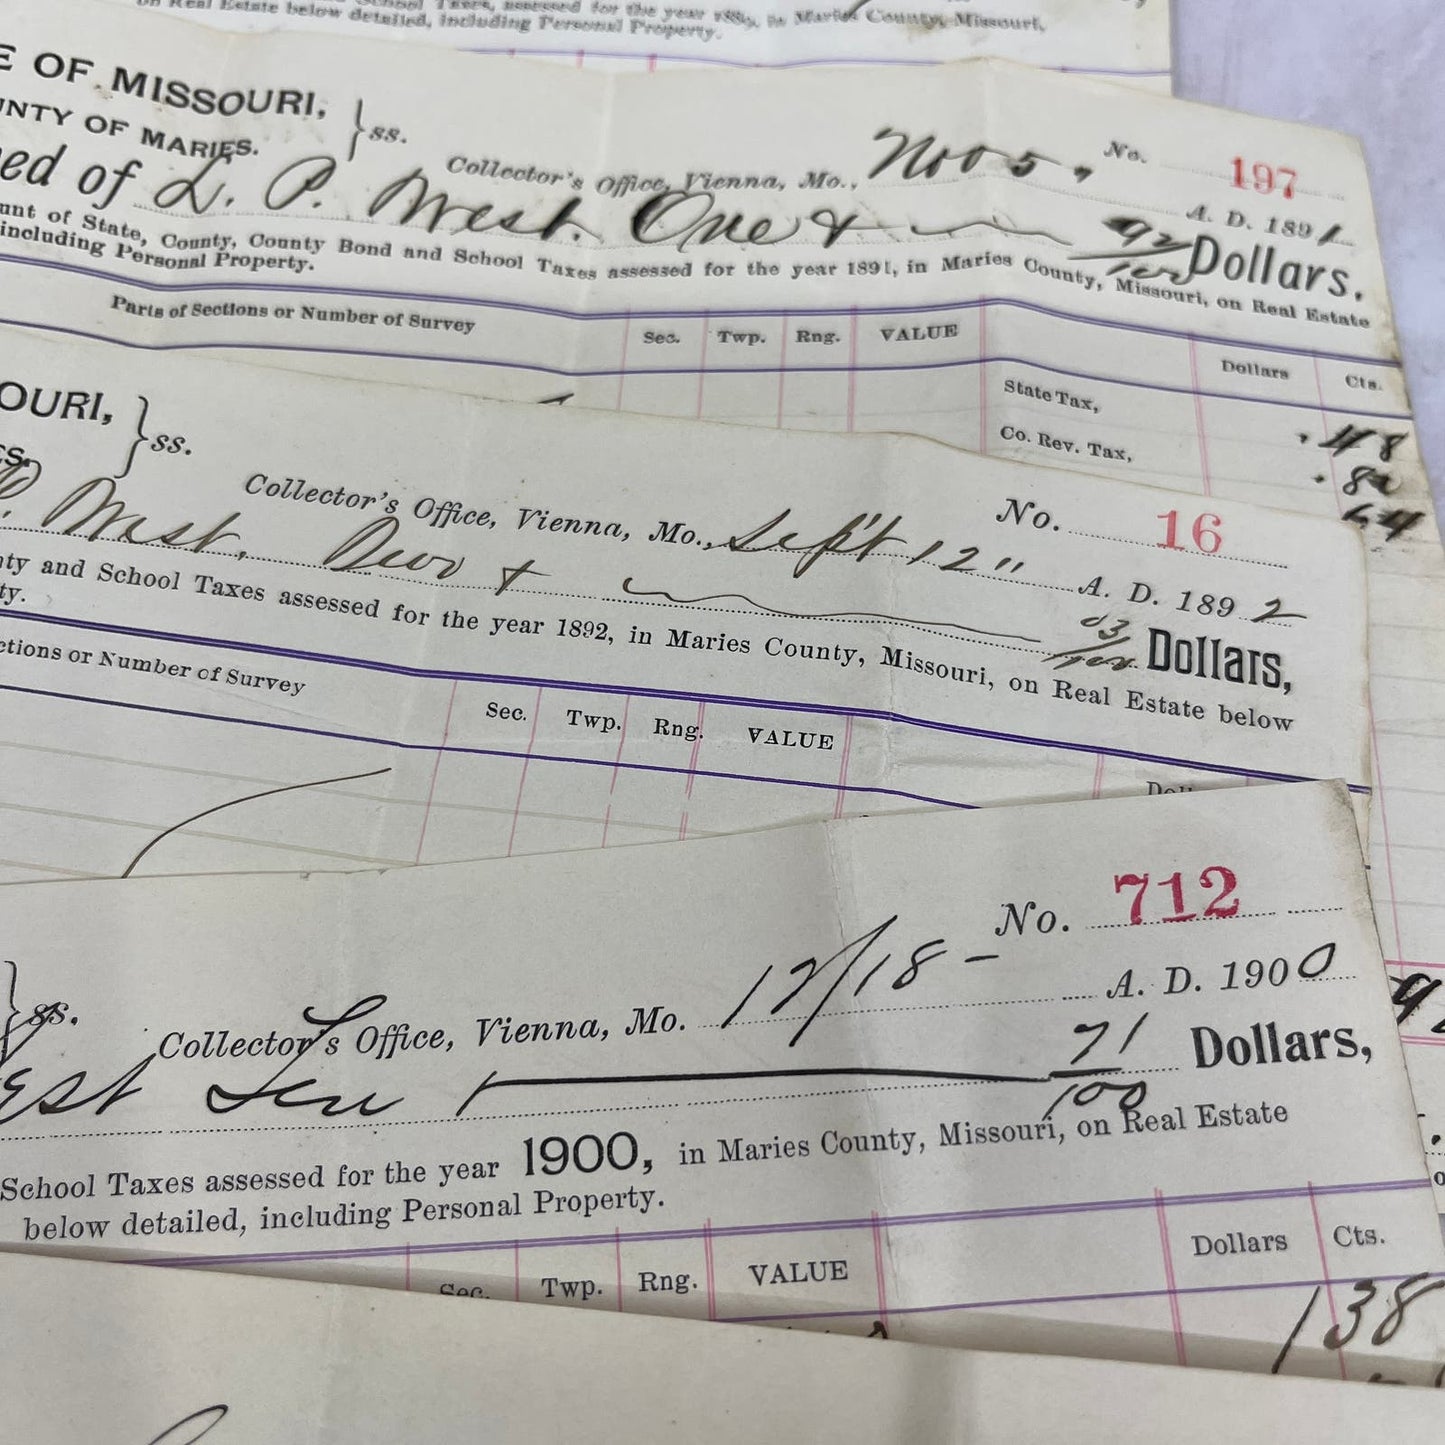 on Real Estate below detailed, including Personal Property.
School Taxes, assessed for the year 1889, in Maries County, Missouri,
E OF MISSOURI,
UNTY OF MARIES.
ss.
Collector's Office, Vienna, Mo., Nov 5, No. 197
A. D. 1891
ed of L. P. West. One & 92/100 Dollars.
unt of State, County, County Bond and School Taxes assessed for the year 1891, in Maries County, Missouri, on Real Estate
including Personal Property.
Parts of Sections or Number of Survey Sec. Twp. Rng. VALUE Dollars Cts.
State Tax, .48
Co. Rev. Tax, .80
64
OURI,
ss.
Collector's Office, Vienna, Mo., Sept 12" No. 16
A. D. 1892
P. West. Two & 03/100 Dollars,
nty and School Taxes assessed for the year 1892, in Maries County, Missouri, on Real Estate below
ty.
ctions or Number of Survey Sec. Twp. Rng. VALUE
No. 712
ss.
Collector's Office, Vienna, Mo. 12/18- A. D. 1900
est Ten + 71/100 Dollars,
School Taxes assessed for the year 1900, in Maries County, Missouri, on Real Estate
below detailed, including Personal Property.
Sec. Twp. Rng. VALUE Dollars Cts.
1 38